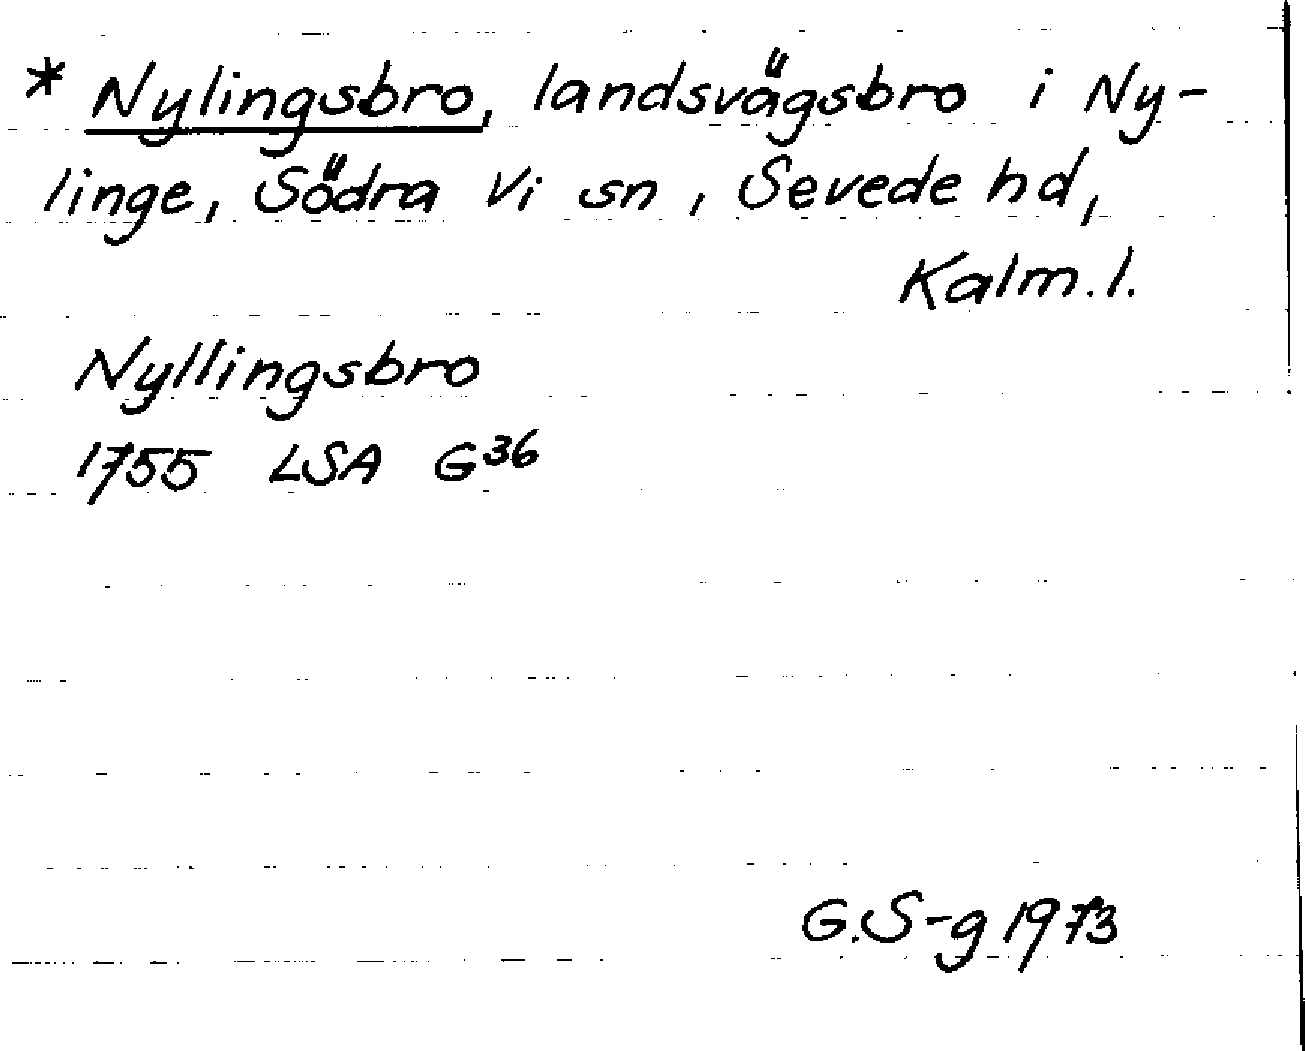 * Nylingsbro, landsvägsbro i Ny-
linge, Södra Vi sn, Sevede hd,
Kalm. l.
Nyllingsbro
1755 LSA G36
G.S-g 1973